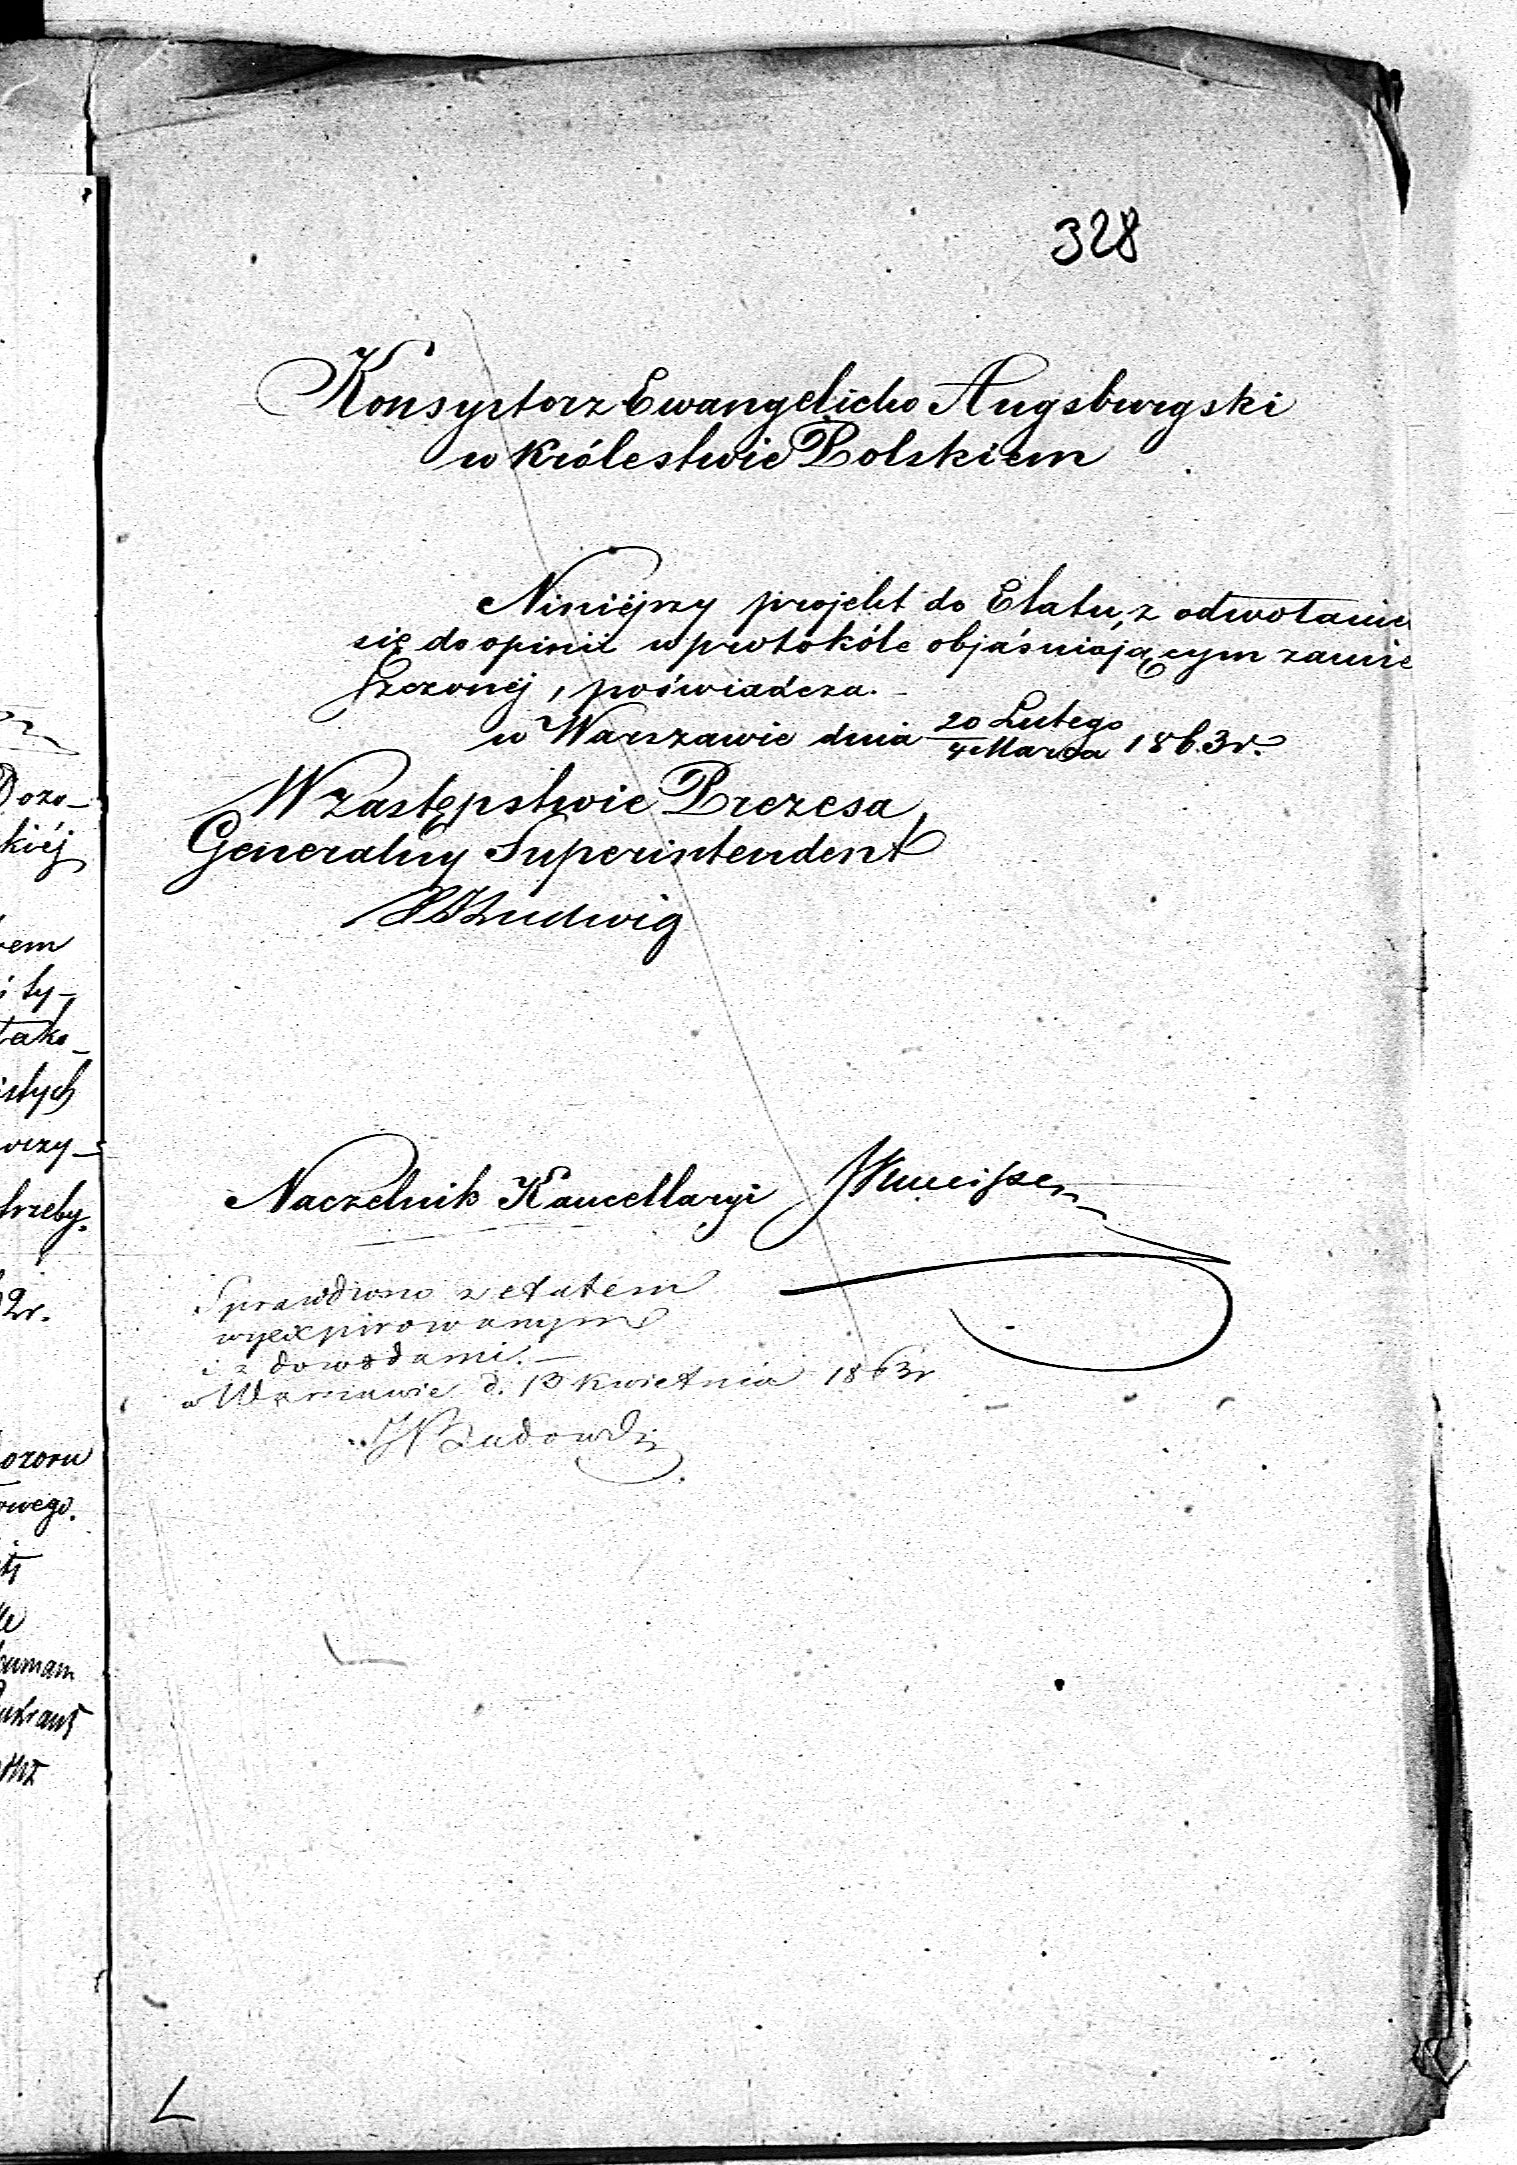 328
Konsystorz Ewangelicko Augsburgski
w Królestwie Polskiem
Niniéjszy projekt do Etatu, z odwołanie
się do opinii w protokóle objaśniającym zamie
szczonéj, poświadcza.
w Warszawie dnia 20 Lutego / 4 Marca 1863 r.
W zastępstwie Prezesa,
Generalny Superintendent
Ludwig
Naczelnik Kancellaryi
Sprawdzono z etatem
wyexpirowanym
i z dowodami. —
w Warszawie d. 13 Kwietnia 1863 r
Dozo-
kiéj
tako-
istych
trzeby.
2r.
ozoru
owego.